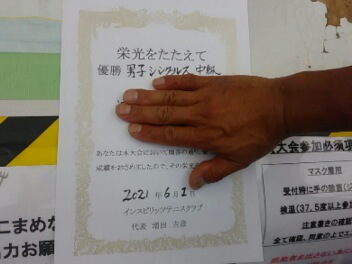 栄光をたたえて
優勝 男子シングルス 中級
あなたは本大会において
成績をおさめましたので、その栄光
2021年6月2日
インスピリッツテニスクラブ
代表 増田 吉彦
こまめな
力お願
大会参加必須項
マスク着用
受付時に手の除菌
検温(37.5度以上参加
注意書きの確認
全て確認、同意の上でエ